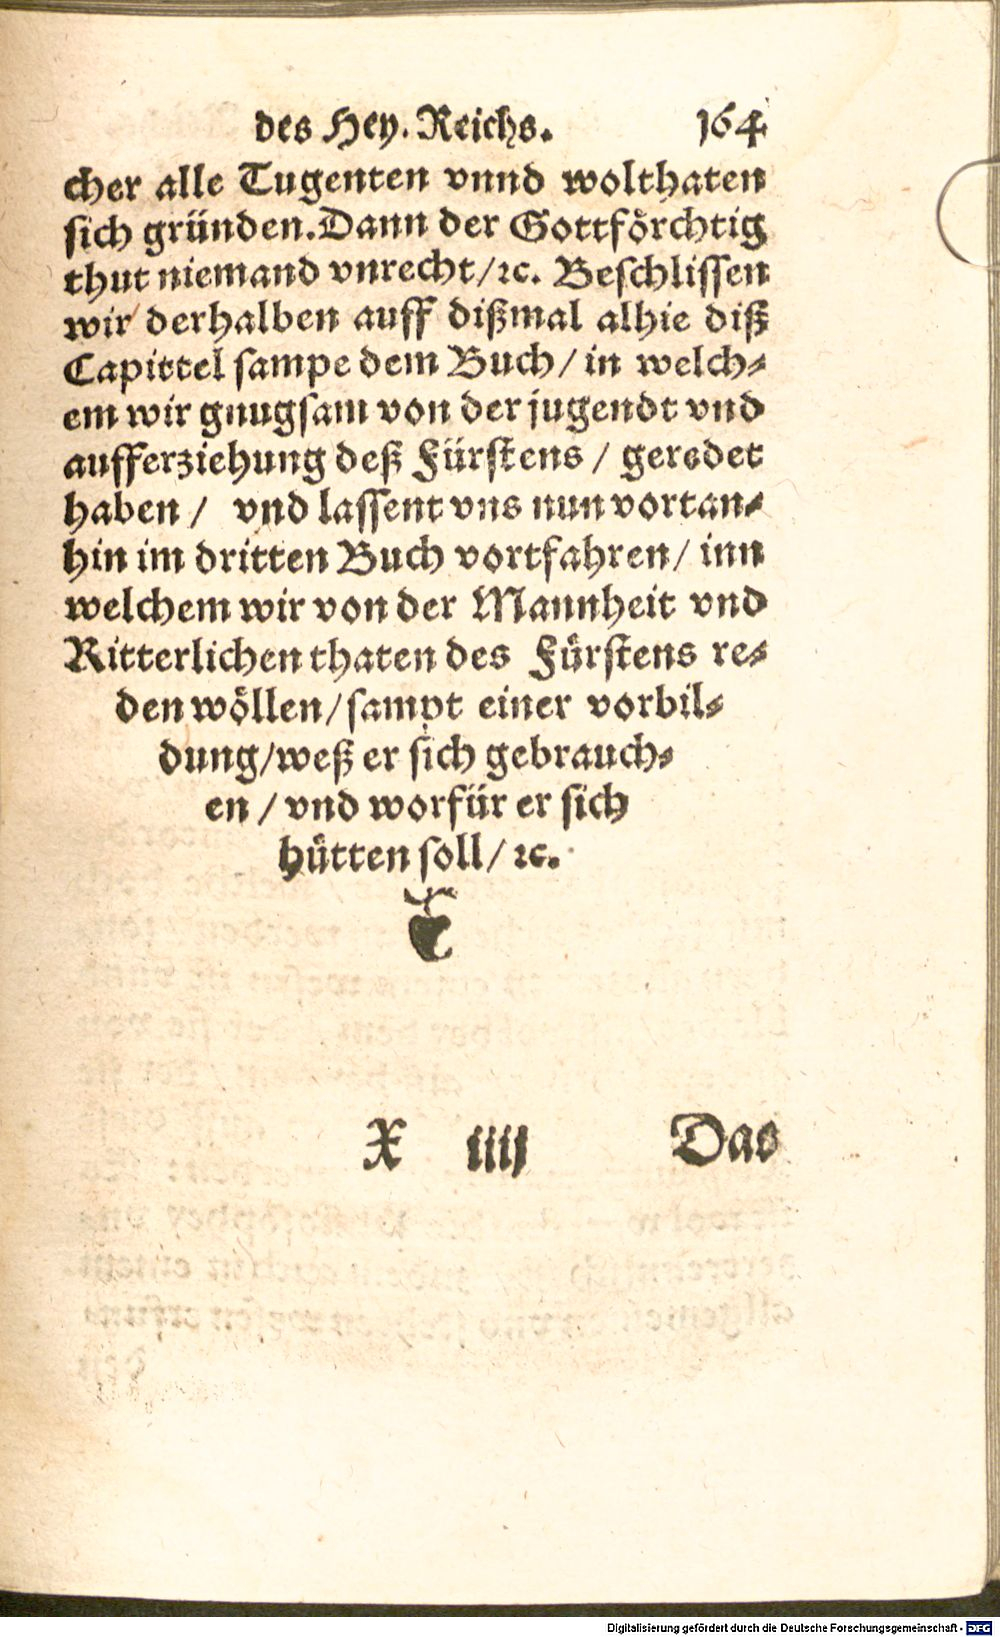 des Hey. Reichs. 164
cher alle Tugenten vnnd wolthaten
sich gründen. Dann der Gottförchtig
thut niemand vnrecht/ ꝛc. Beschlissen
wir derhalben auff dißmal alhie diß
Capittel sampe dem Buch/ in welch⸗
em wir gnugsam von der jugendt vnd
aufferziehung deß Fürstens / geredet
haben / vnd lassent vns nun vortan⸗
hin im dritten Buch vortfahren/ inn
welchem wir von der Mannheit vnd
Ritterlichen thaten des Fürstens re⸗
den wöllen/ sampt einer vorbil⸗
dung/ weß er sich gebrauch⸗
en / vnd worfür er sich
hütten soll/ ꝛc.
X iiij Das
Digitalisierung gefördert durch die Deutsche Forschungsgemeinschaft - DFG